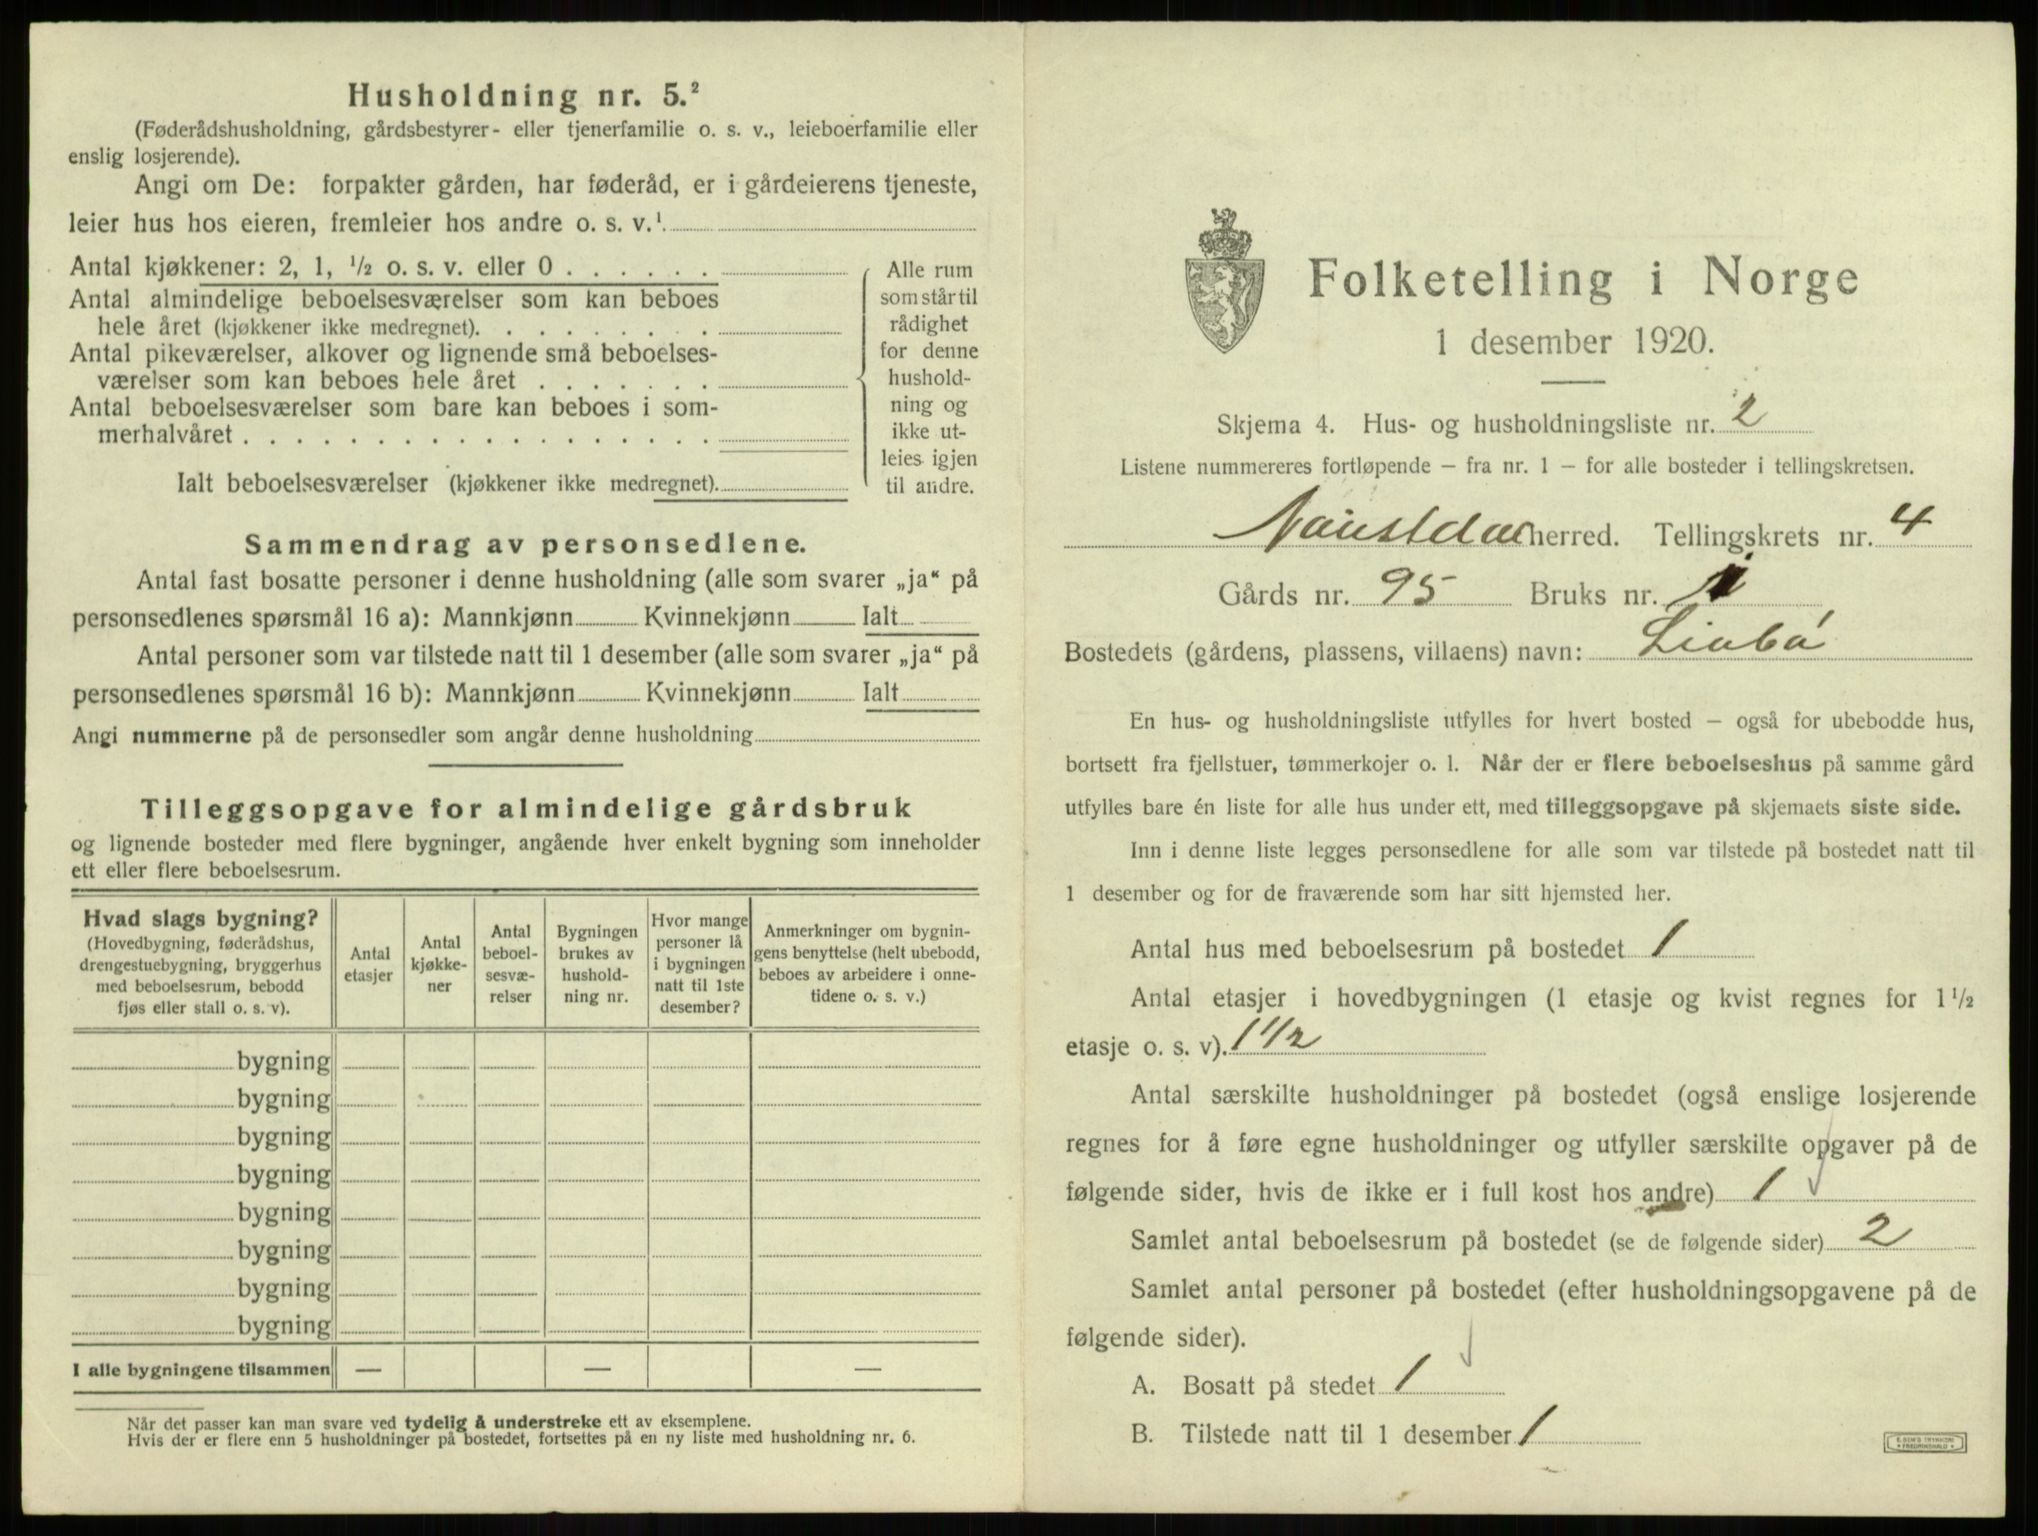 Husholdning nr. 5.²
(Føderådshusholdning, gårdsbestyrer- eller tjenerfamilie o. s. v., leieboerfamilie eller
enslig losjerende).
Angi om De: forpakter gården, har føderåd, er i gårdeierens tjeneste,
leier hus hos eieren, fremleier hos andre o. s. v.¹
Antal kjøkkener: 2, 1, ½ o. s. v. eller 0 . . . . . .
Antal almindelige beboelsesværelser som kan beboes
hele året (kjøkkener ikke medregnet). . . . . . . . .
Antal pikeværelser, alkover og lignende små beboelses-
værelser som kan beboes hele året . . . . . . .
Antal beboelsesværelser som bare kan beboes i som-
merhalvåret . . . . . . . . . . . . . . . . . .
Ialt beboelsesværelser (kjøkkener ikke medregnet).
Alle rum
som står til
rådighet
for denne
hushold-
ning og
ikke ut-
leies igjen
til andre.
Sammendrag av personsedlene.
Antal fast bosatte personer i denne husholdning (alle som svarer „ja“ på
personsedlenes spørsmål 16 a): Mannkjønn Kvinnekjønn Ialt
Antal personer som var tilstede natt til 1 desember (alle som svarer „ja“ på
personsedlenes spørsmål 16 b): Mannkjønn Kvinnekjønn Ialt
Angi nummerne på de personsedler som angår denne husholdning
Tilleggsopgave for almindelige gårdsbruk
og lignende bosteder med flere bygninger, angående hver enkelt bygning som inneholder
ett eller flere beboelsesrum.
Hvad slags bygning?
(Hovedbygning, føderådshus,
drengestuebygning, bryggerhus
med beboelsesrum, bebodd
fjøs eller stall o. s. v).
Antal
etasjer
Antal
kjøkke-
ner
Antal
beboel-
sesvæ-
relser
Bygningen
brukes av
hushold-
ning nr.
Hvor mange
personer lå
i bygningen
natt til 1ste
desember?
Anmerkninger om bygnin-
gens benyttelse (helt ubebodd,
beboes av arbeidere i onne-
tidene o. s. v.)
bygning
bygning
bygning
bygning
bygning
bygning
bygning
bygning
I alle bygningene tilsammen — — —
Når det passer kan man svare ved tydelig å understreke ett av eksemplene.
Hvis der er flere enn 5 husholdninger på bostedet, fortsettes på en ny liste med husholdning nr. 6.
Folketelling i Norge
1 desember 1920.
Skjema 4. Hus- og husholdningsliste nr. 2
Listene nummereres fortløpende – fra nr. 1 – for alle bosteder i tellingskretsen.
Naustdal herred. Tellingskrets nr. 4
Gårds nr. 95 Bruks nr. 1
Bostedets (gårdens, plassens, villaens) navn: Liabø
En hus- og husholdningsliste utfylles for hvert bosted – også for ubebodde hus,
bortsett fra fjellstuer, tømmerkojer o. l. Når der er flere beboelseshus på samme gård
utfylles bare én liste for alle hus under ett, med tilleggsopgave på skjemaets siste side.
Inn i denne liste legges personsedlene for alle som var tilstede på bostedet natt til
1 desember og for de fraværende som har sitt hjemsted her.
Antal hus med beboelsesrum på bostedet 1
Antal etasjer i hovedbygningen (1 etasje og kvist regnes for 1½
etasje o. s. v). 1 1/2
Antal særskilte husholdninger på bostedet (også enslige losjerende
regnes for å føre egne husholdninger og utfyller særskilte opgaver på de
følgende sider, hvis de ikke er i full kost hos andre) 1
Samlet antal beboelsesrum på bostedet (se de følgende sider) 2
Samlet antal personer på bostedet (efter husholdningsopgavene på de
følgende sider).
A. Bosatt på stedet 1
B. Tilstede natt til 1 desember 1